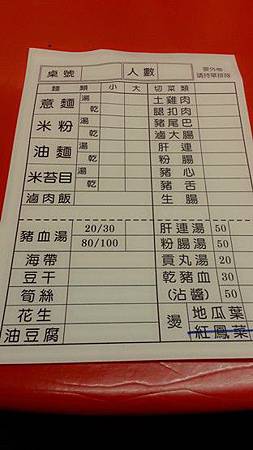 桌號 人數
麵類 小 大 切菜類
意麵 湯 乾 土雞肉
腿扣肉
米粉 湯 乾 豬尾巴
滷大腸
油麵 湯 乾 肝連
粉腸
米苔目 湯 乾 豬心
豬舌
滷肉飯 生腸
豬血湯 20/30 肝連湯 50
80/100 粉腸湯 50
海帶 貢丸湯 20
豆干 乾豬血 30
筍絲 (沾醬) 50
花生 燙 地瓜葉
油豆腐 紅鳳菜